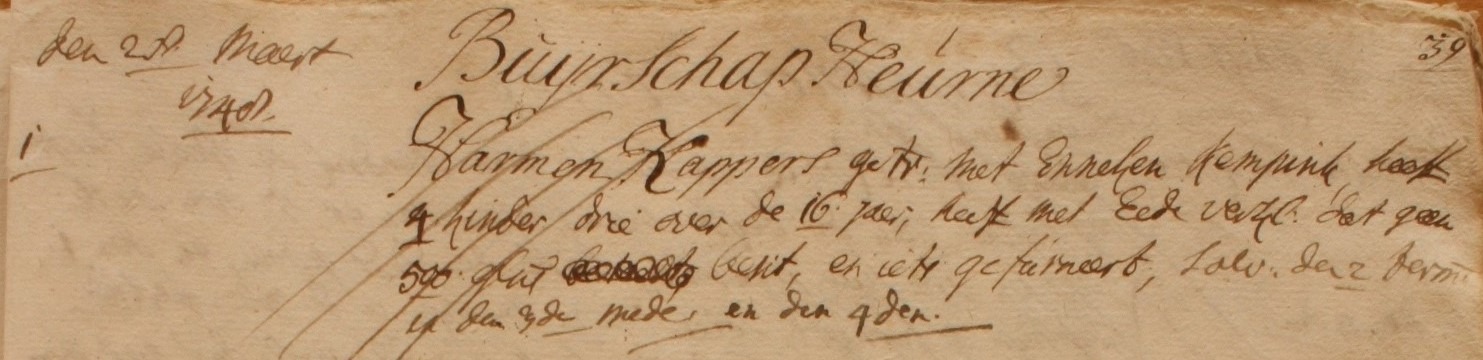 den 28. Maert
1748.
Buijrschap Heurne
39
1
Harmen Kappers getr: met Enneken Kempink, heeft
4 kinder drie over de 16 jaer, heeft met Eede verkl. dat geen
500 besit, en iets gefurneert, solv. den 2 term:
en den 3de mede, en den 4den.